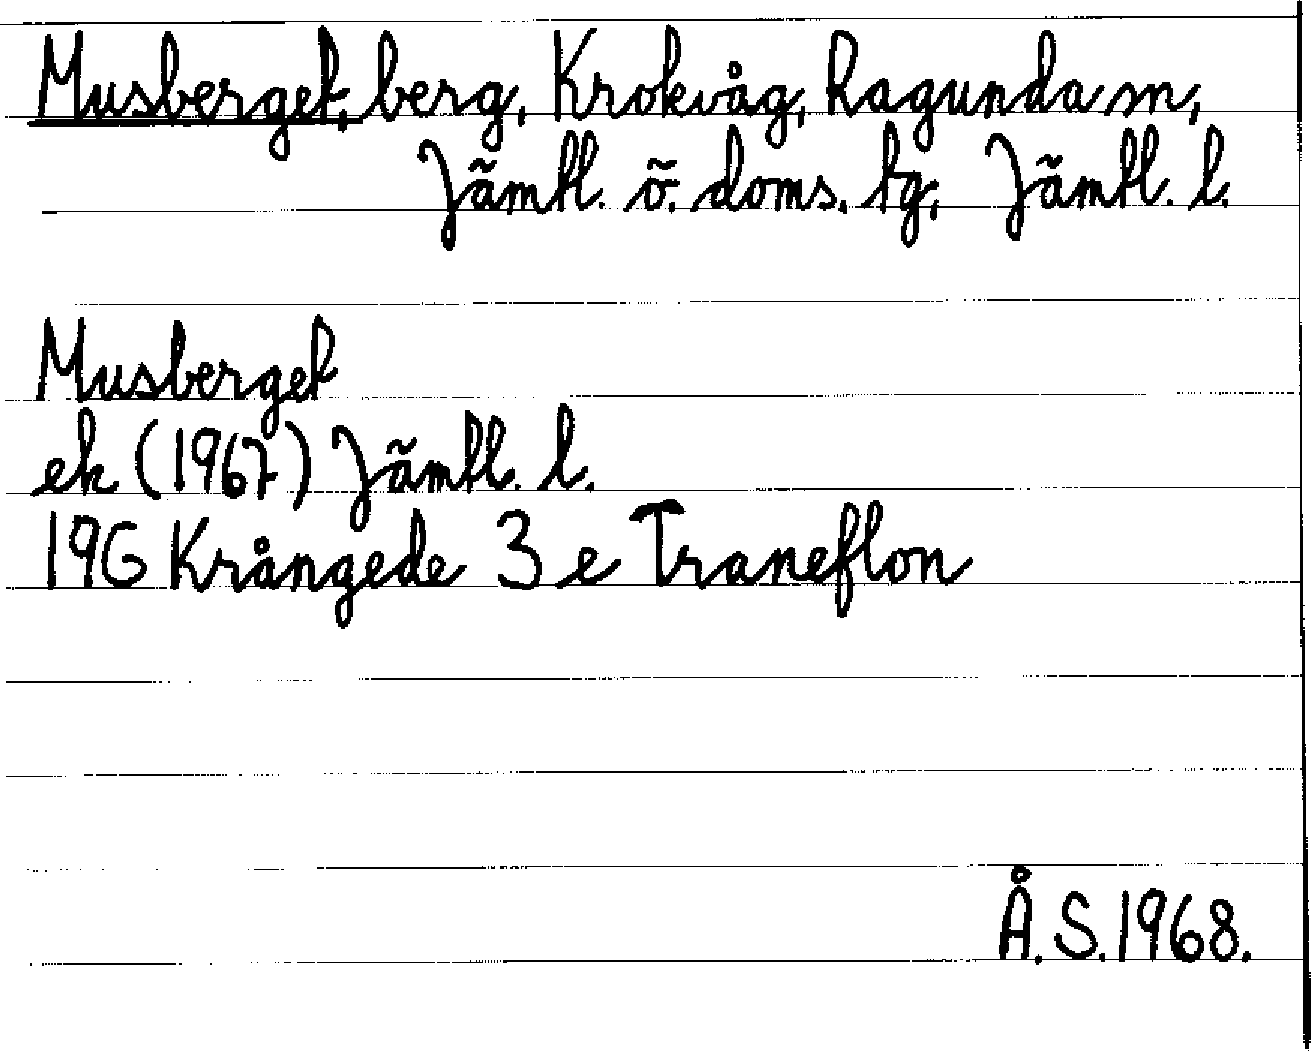 Musberget, berg, Krokvåg, Ragunda sn,
Jämtl. ö. doms. tg, Jämtl. l.
Musberget
ek (1967) Jämtl. l.
19G Krångede 3 e Traneflon
Å.S. 1968.